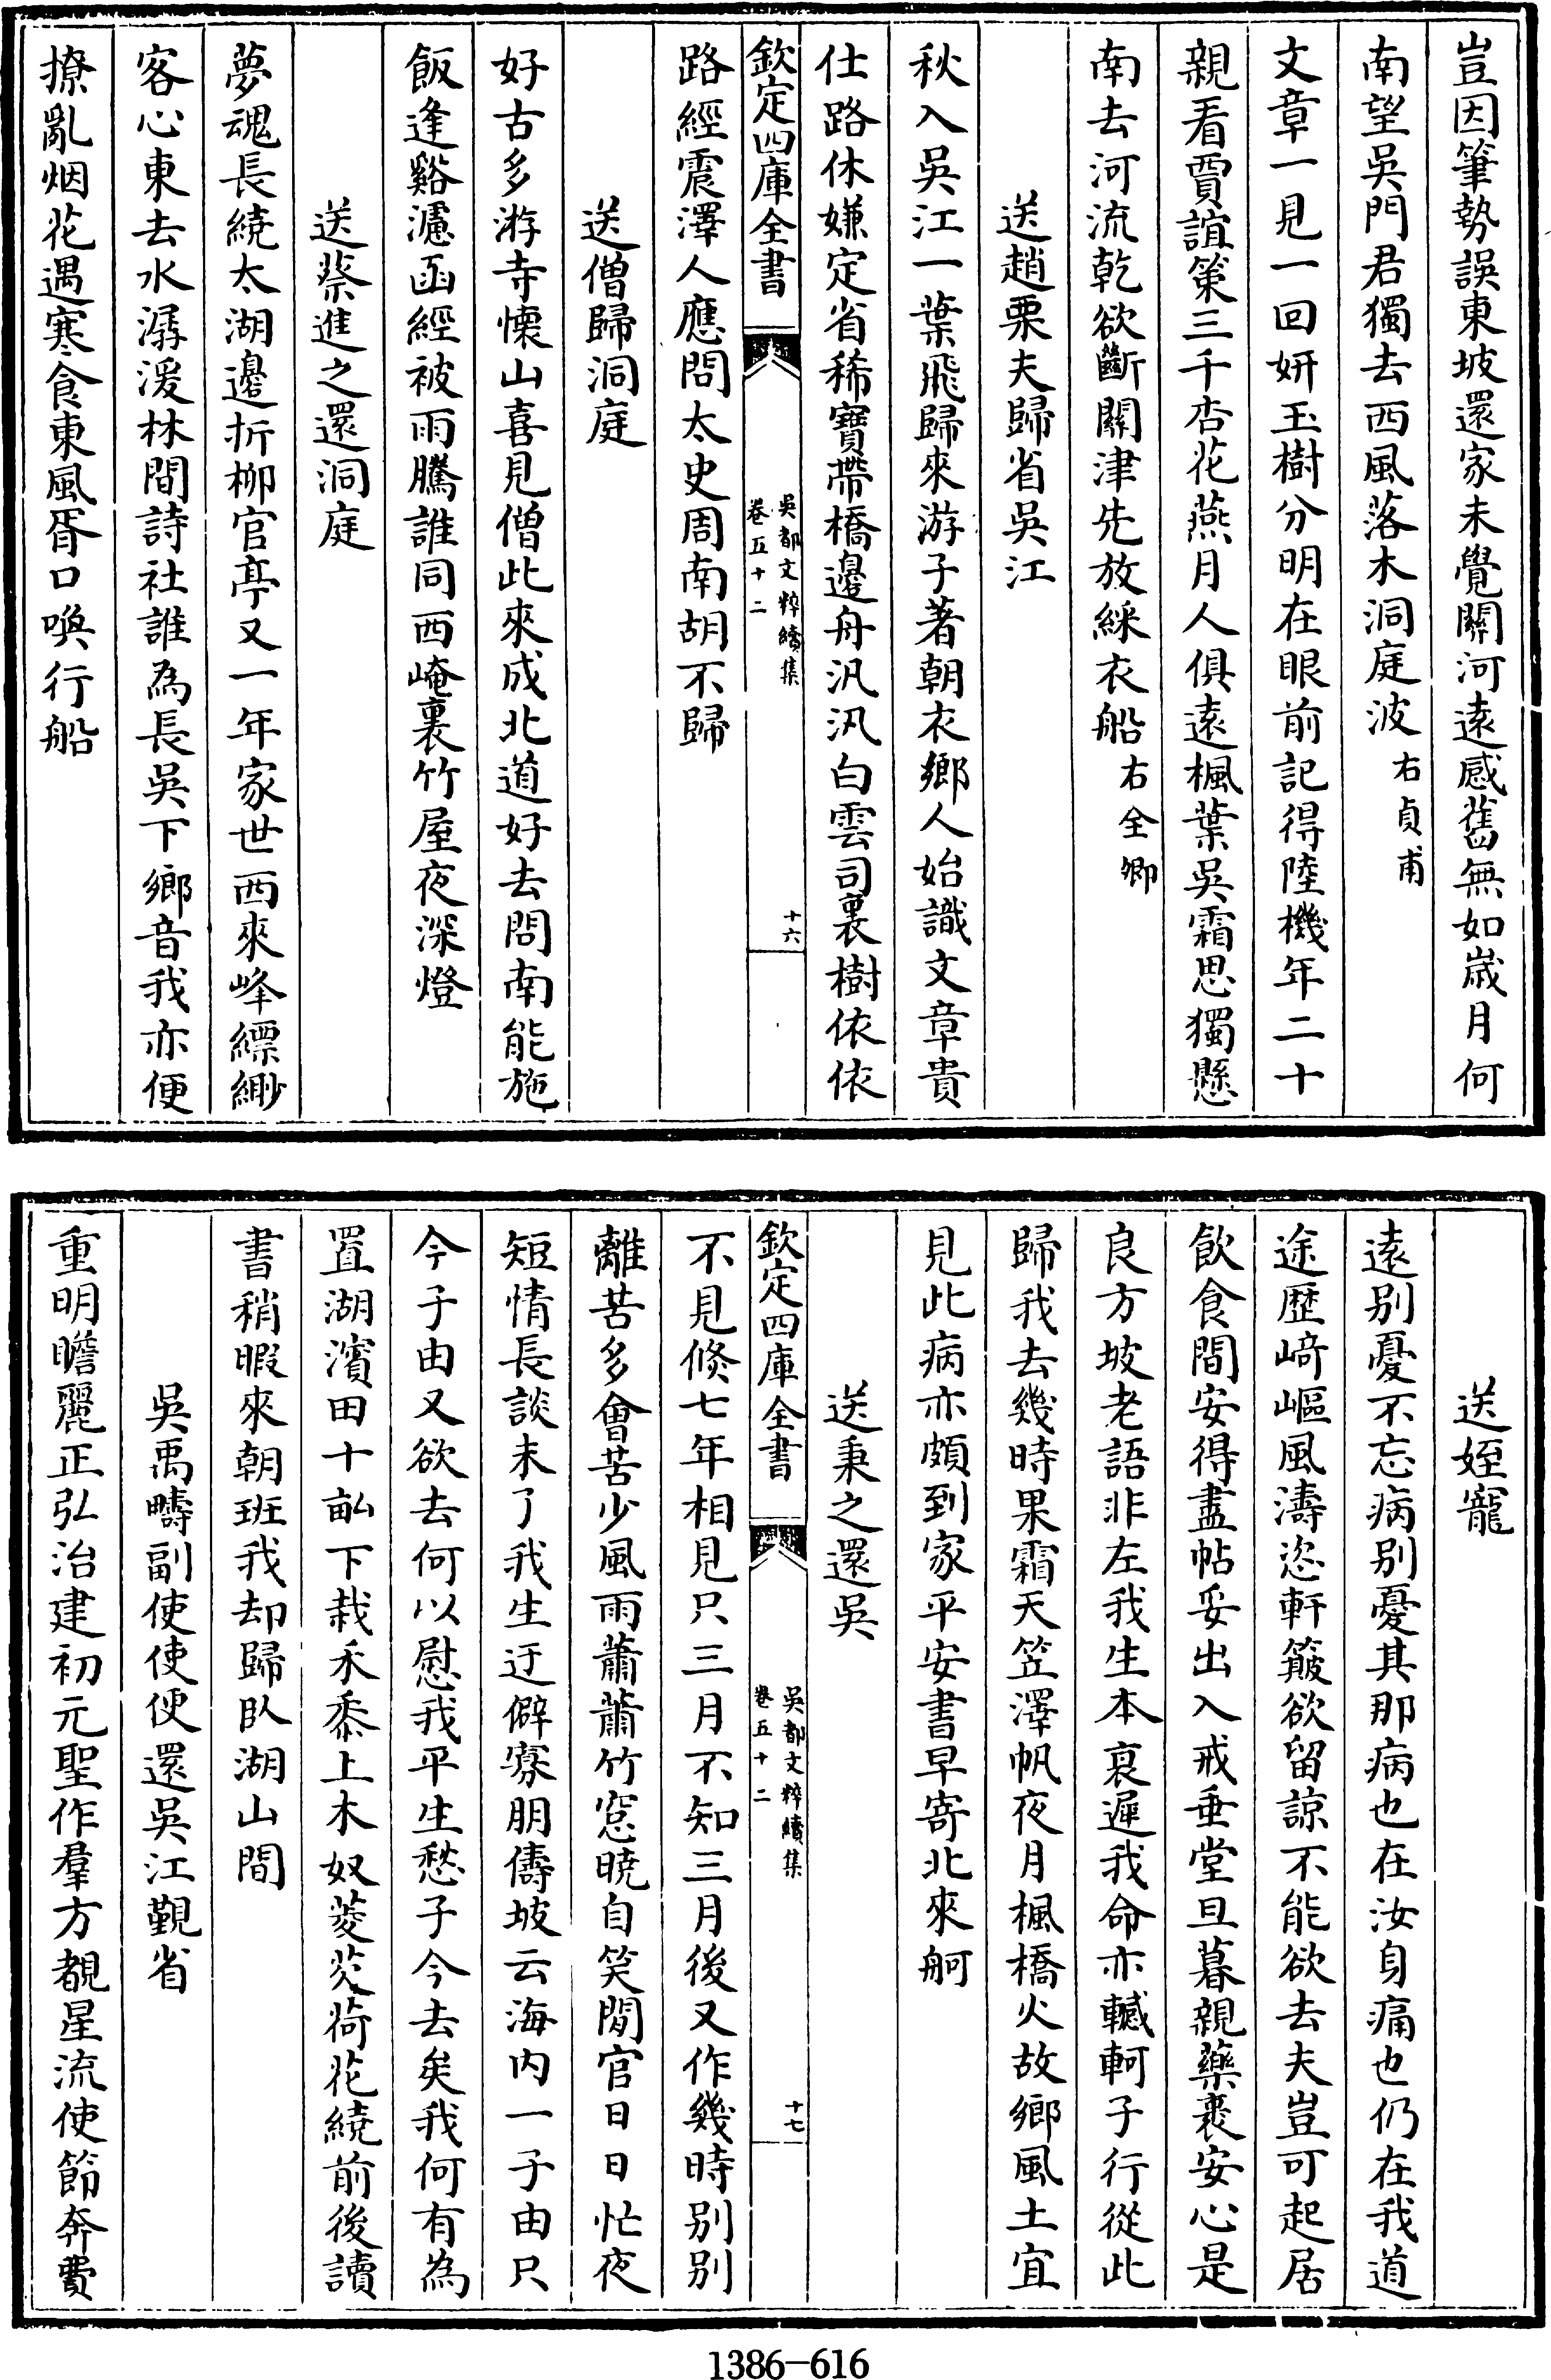 豈因筆勢誤東坡還家未覺關河遠感舊無如歲月何
南望吳門君獨去西風落木洞庭波右貞甫
文章一見一回妍玉樹分明在眼前記得陸機年二十
親看賈誼策三千杏花燕月人俱遠楓葉吳霜思獨懸
南去河流乾欲斷關津先放綵衣船右全卿
送趙栗夫歸省吳江
秋入吳江一葉飛歸來游子著朝衣鄉人始識文章貴
仕路休嫌定省稀寶帶橋邊舟汎汎白雲司裏樹依依
欽定四庫全書
吳都文粹續集
卷五十二
十六
路經震澤人應問太史周南胡不歸
送僧歸洞庭
好古多游寺懷山喜見僧此來成北道好去問南能施
飯逢谿濾函經被雨騰誰同西崦裏竹屋夜深燈
送蔡進之還洞庭
夢魂長繞太湖邊折柳官亭又一年家世西來峰縹緲
客心東去水潺湲林間詩社誰為長吳下鄉音我亦便
撩亂烟花遇寒食東風胥口喚行船
送姪寵
遠别憂不忘病别憂其那病也在汝身痛也仍在我道
途歴﨑嶇風濤恣軒簸欲留諒不能欲去夫豈可起居
飲食間安得盡帖妥出入戒垂堂旦暮親藥裹安心是
良方坡老語非左我生本衰遲我命亦轗軻子行從此
歸我去幾時果霜天笠澤帆夜月楓橋火故鄉風土宜
見此病亦頗到家平安書早寄北來舸
送秉之還吳
欽定四庫全書
吳都文粹續集
卷五十二
十七
不見倐七年相見只三月不知三月後又作幾時别别
離苦多會苦少風雨蕭蕭竹窓曉自笑閒官日日忙夜
短情長談未了我生迂僻寡朋儔坡云海内一子由只
今子由又欲去何以慰我平生愁子今去矣我何有為
置湖濱田十畝下栽禾黍上木奴菱芡荷花繞前後讀
書稍暇來朝班我却歸臥湖山間
吳禹疇副使使便還吳江覲省
重明瞻麗正弘治建初元聖作羣方覩星流使節奔費
1386-616